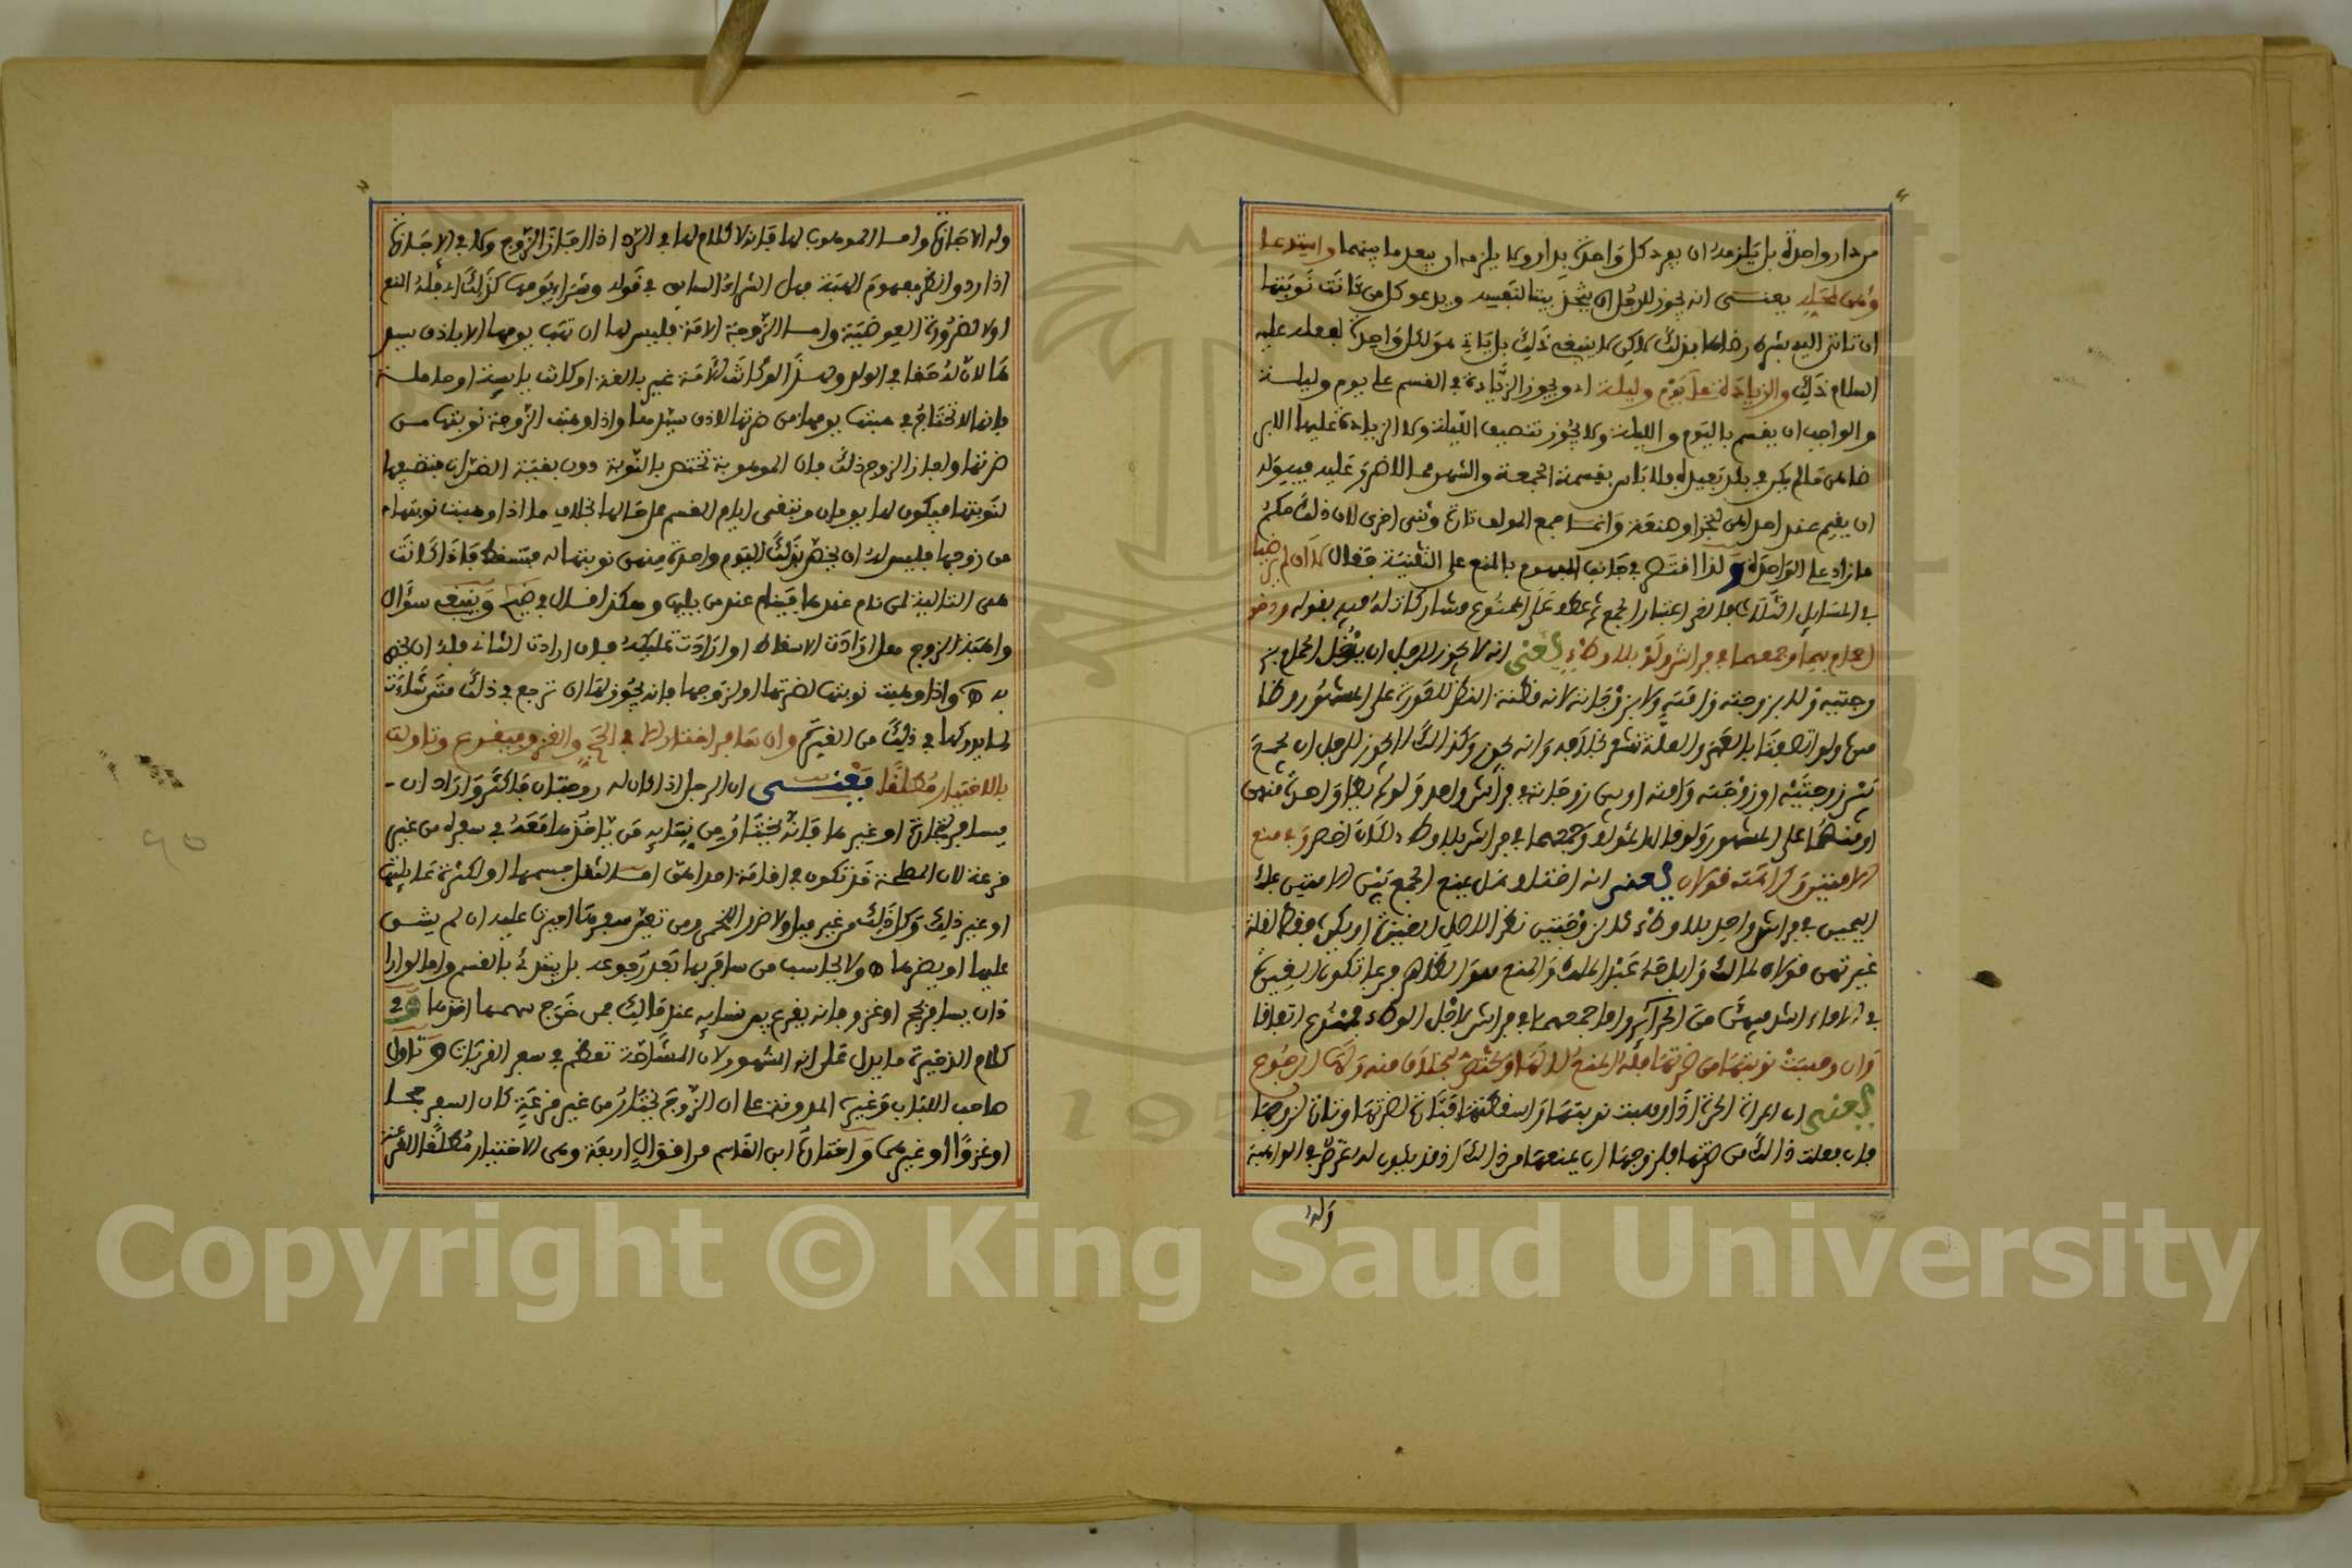 من دار واحدة بل يلزمه ان يفرد كل واحدة بدار ولا يلزمه ان يبعد ما بينهما واستدعا
وهن لمحله يعنى انه يجوز للرجل ان يتخذ بيتا لنفسه ويدعو كل من كانت نوبتها
ان تاتى اليه برضاها بذلك لاكن لا ينبغى ذلك بل ياتي هو لكل واحدة لفعله عليه
السلام ذلك والزيادة على يوم وليلة اي ويجوز الزيادة في القسم على يوم وليلة
والواجب ان يقسم باليوم والليلة ولا يجوز تنصيف الليلة ولا الزيادة عليها الا بر
ضاهن ما لم يكن في بلد بعيدة فلا باس بقسمة الجمعة والشهر مما لا ضرر عليه فيه وله
ان يقيم عند احداهن لتجر او صنعة وانما جمع المولف تارة وثنى اخرى لان ذلك حكم
ما زاد على الواحدة ولذا افتتح في جانب المفهوم بالمنع على التثنية فقال لا ان لم يرضيا
في المسايل الثلاث فانتفى اعتبار الجمع ثم عطف على الممنوع مشاركات له فيه بقوله ودخو
ل حمام بهما وجمعهما في فراش ولو بلا وطء يعنى انه لا يجوز للرجل ان يدخل الحمام بز
وجتيه ولا بزوجته وامته ولا بزوجاته لانه مظنة النظر للعورة على المشهور وظا
هره ولو اتصفتا بالعمى والعلة تشعر بخلافه وانه يجوز وكذالك لا يجوز للرجل ان يجمع
بين زوجتيه او زوجته وامته او بين زوجاته في فراش واحد ولو لم يطأ واحدة منهن
او منهما على المشهور ولو قال المؤلف وجمعهما في فراش بلا وطء لكان اخصر وفي منع
الامتين وكراهته قولان يعنى انه اختلف هل يمنع الجمع بين الامتين بملك
اليمين في فراش واحد بلا وطء كالزوجتين نظرا لاصل الغيرة او يكره فقط لقلة
غيرتهن قولان لمالك وابن الماجشون وابلاحة عند الملك والمنع هو الظاهر فربما تكون الغيرة
في الاماء اشد منها من الحراير واما جمعهما في فراش لاجل الوطء فممنوع اتفاقا
وان وهبت نوبتها من ضرتها فله المنع لا لها وتختص بخلاف منه ولها الرجوع
يعنى ان المراة الحرة اذا وهبت نوبتها واسقطتها فتارة لضرتها وتارة لزوجها
فان فعلت ذالك من ضرتها فلزوجها ان يمنعها من ذالك اذ قد يكون له غرض في الواهبة
وله ا
وله الاجازة واما الموهوب لها فانه لا كلام لها في الرد اذا اجاز الزوج ولا في الاجازة
اذا رد وانظر مفهوم الهبة هل الشراء السابق في قوله وشراء يومها كذلك اي فله المنع
اولا لضرورة العوضية واما الزوجة الامة فليس لها ان تهب يومها الا باذن سيد
ها لان له حقا في الولد وهذا لو كانت الامة غير بالغة او كانت يايسة او حاملة
فانها لا تحتاج في هبتها يومها من ضرتها لاذن سيدها واذا وهبت الزوجة نوبتها من
ضرتها واجاز الزوج ذلك فان الموهوبة تختص بالنوبة دون بقية الضراير فتضيفها
لنوبتها فيكون لها يومان وتبقى ايام القسم على حالها بخلاف ما اذا وهبت نوبتها
من زوجها فليس له ان يخص بذلك اليوم واحدة منهن نوبتها له فتسقط فاذا كانت
هى التالية لمن نام عندها فينام عند من يليها وهكذا قال في ضيح وينبغى سؤال
واهبة الزوج هل ارادت الاسقاط او ارادت تمليكه فان ارادت الثانى فله ان يخص
به واذا وهبت نوبتها لضرتها او لزوجها فانه يجوز لها ان ترجع في ذلك متى شاءت
لما يدركها في ذلك من الغيرة وان سافر اختار الا في الحج والغزو فيقرع وتاولت
بالاختيار مطلقا يعنى ان الرجل اذا كان له زوجتان فاكثر واراد ان
يسافر لتجارة او غيرها فانه يختار من نسايه من ياخذها معه في سفره من غير
قرعة لان المصلحة قد تكون في اقامة احداهن اما لثقل جسمها او لكثرة عايلتها
او غير ذلك وكل ذلك من غير ميل ولا ضرر اللخمى ومن تعين سفرها اجبرت عليه ان لم يشق
عليها او يضرها ولا يحاسب من سافر بها بعد رجوعه بل يبتدئ بالقسم واما لو ارا
د ان يسافر لحج او غزو فانه يقرع بين نسايه عند مالك فمن خرج سهمها اخذها وفي
كلام الذخيرة ما يدل على انه المشهور لان المشاحة تعظم في سفر القربات وتاول
صاحب اللباب وغيره المدونة على ان الزوج يختار من غير قرعة كان السفر حجا
او غزوا او غيرهما واختاره ابن القاسم من اقوال اربعة وهى الاختيار مطلقا القرعة
Copyright © King Saud University